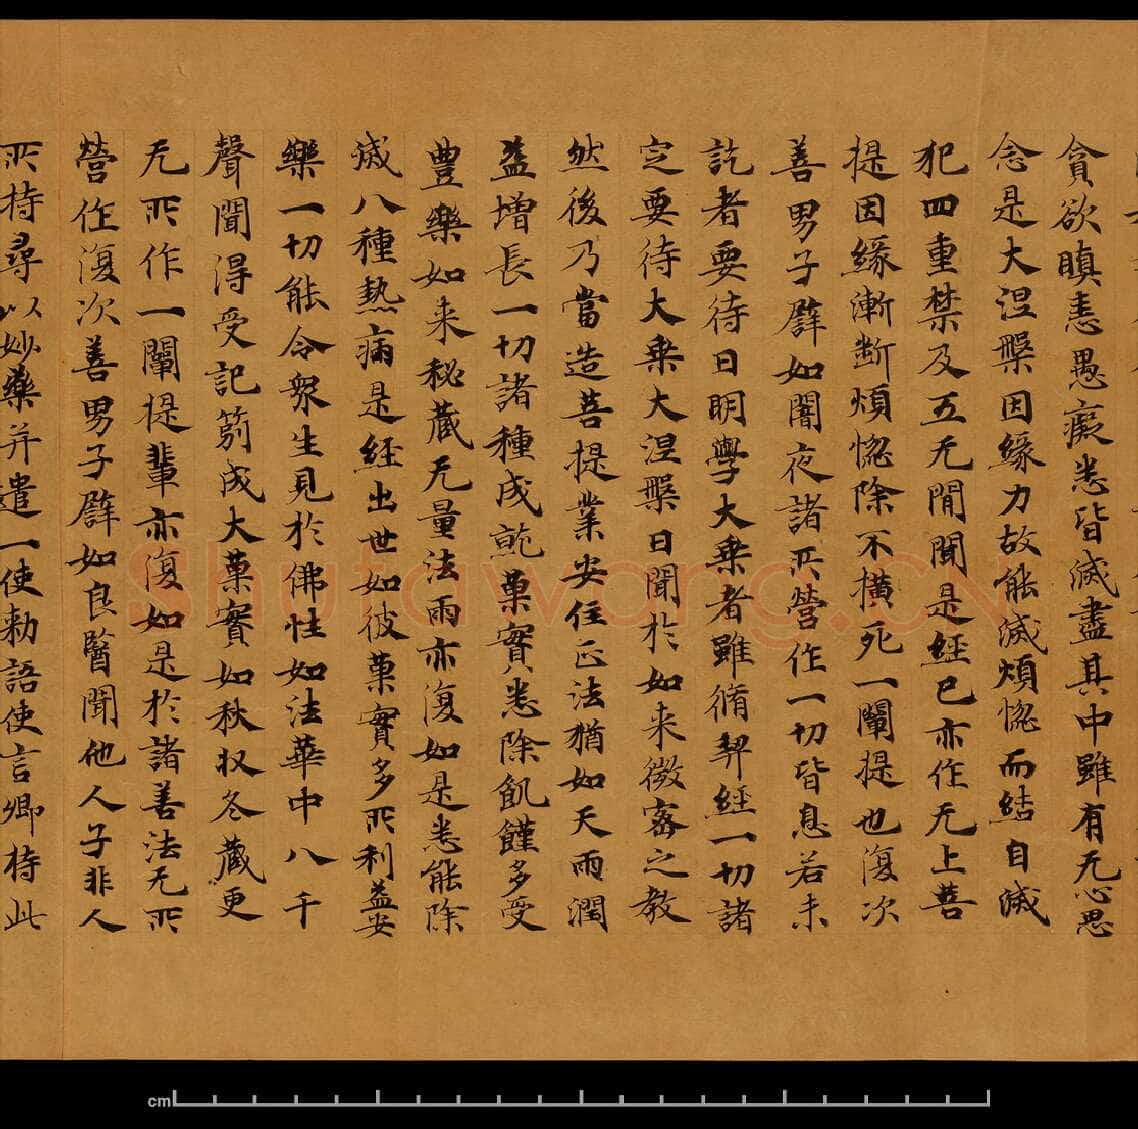 貪欲瞋恚愚癡悉皆滅盡其中雖有无心思
念是大涅槃因緣力故能滅煩惱而結自滅
犯四重禁及五无間聞是經已亦作无上菩
提因緣漸斷煩惱除不橫死一闡提也復次
善男子辟如闇夜諸所營作一切皆息若未
訖者要待日明學大乘者雖脩契經一切諸
定要待大乘大涅槃日聞於如来微密之教
然後乃當造菩提業安住正法猶如天雨潤
益增長一切諸種成就菓實悉除飢饉多受
豊樂如来秘蔵无量法雨亦復如是悉能除
滅八種熱病是經出世如彼菓實多所利益安
樂一切能令衆生見於佛性如法華中八千
聲聞得受記莂成大菓實如秋収冬蔵更
无所作一闡提輩亦復如是於諸善法无所
營作復次善男子辟如良醫聞他人子非人
所持尋以妙藥并遣一使勅語使言卿持此
cm
Shufawang.CN